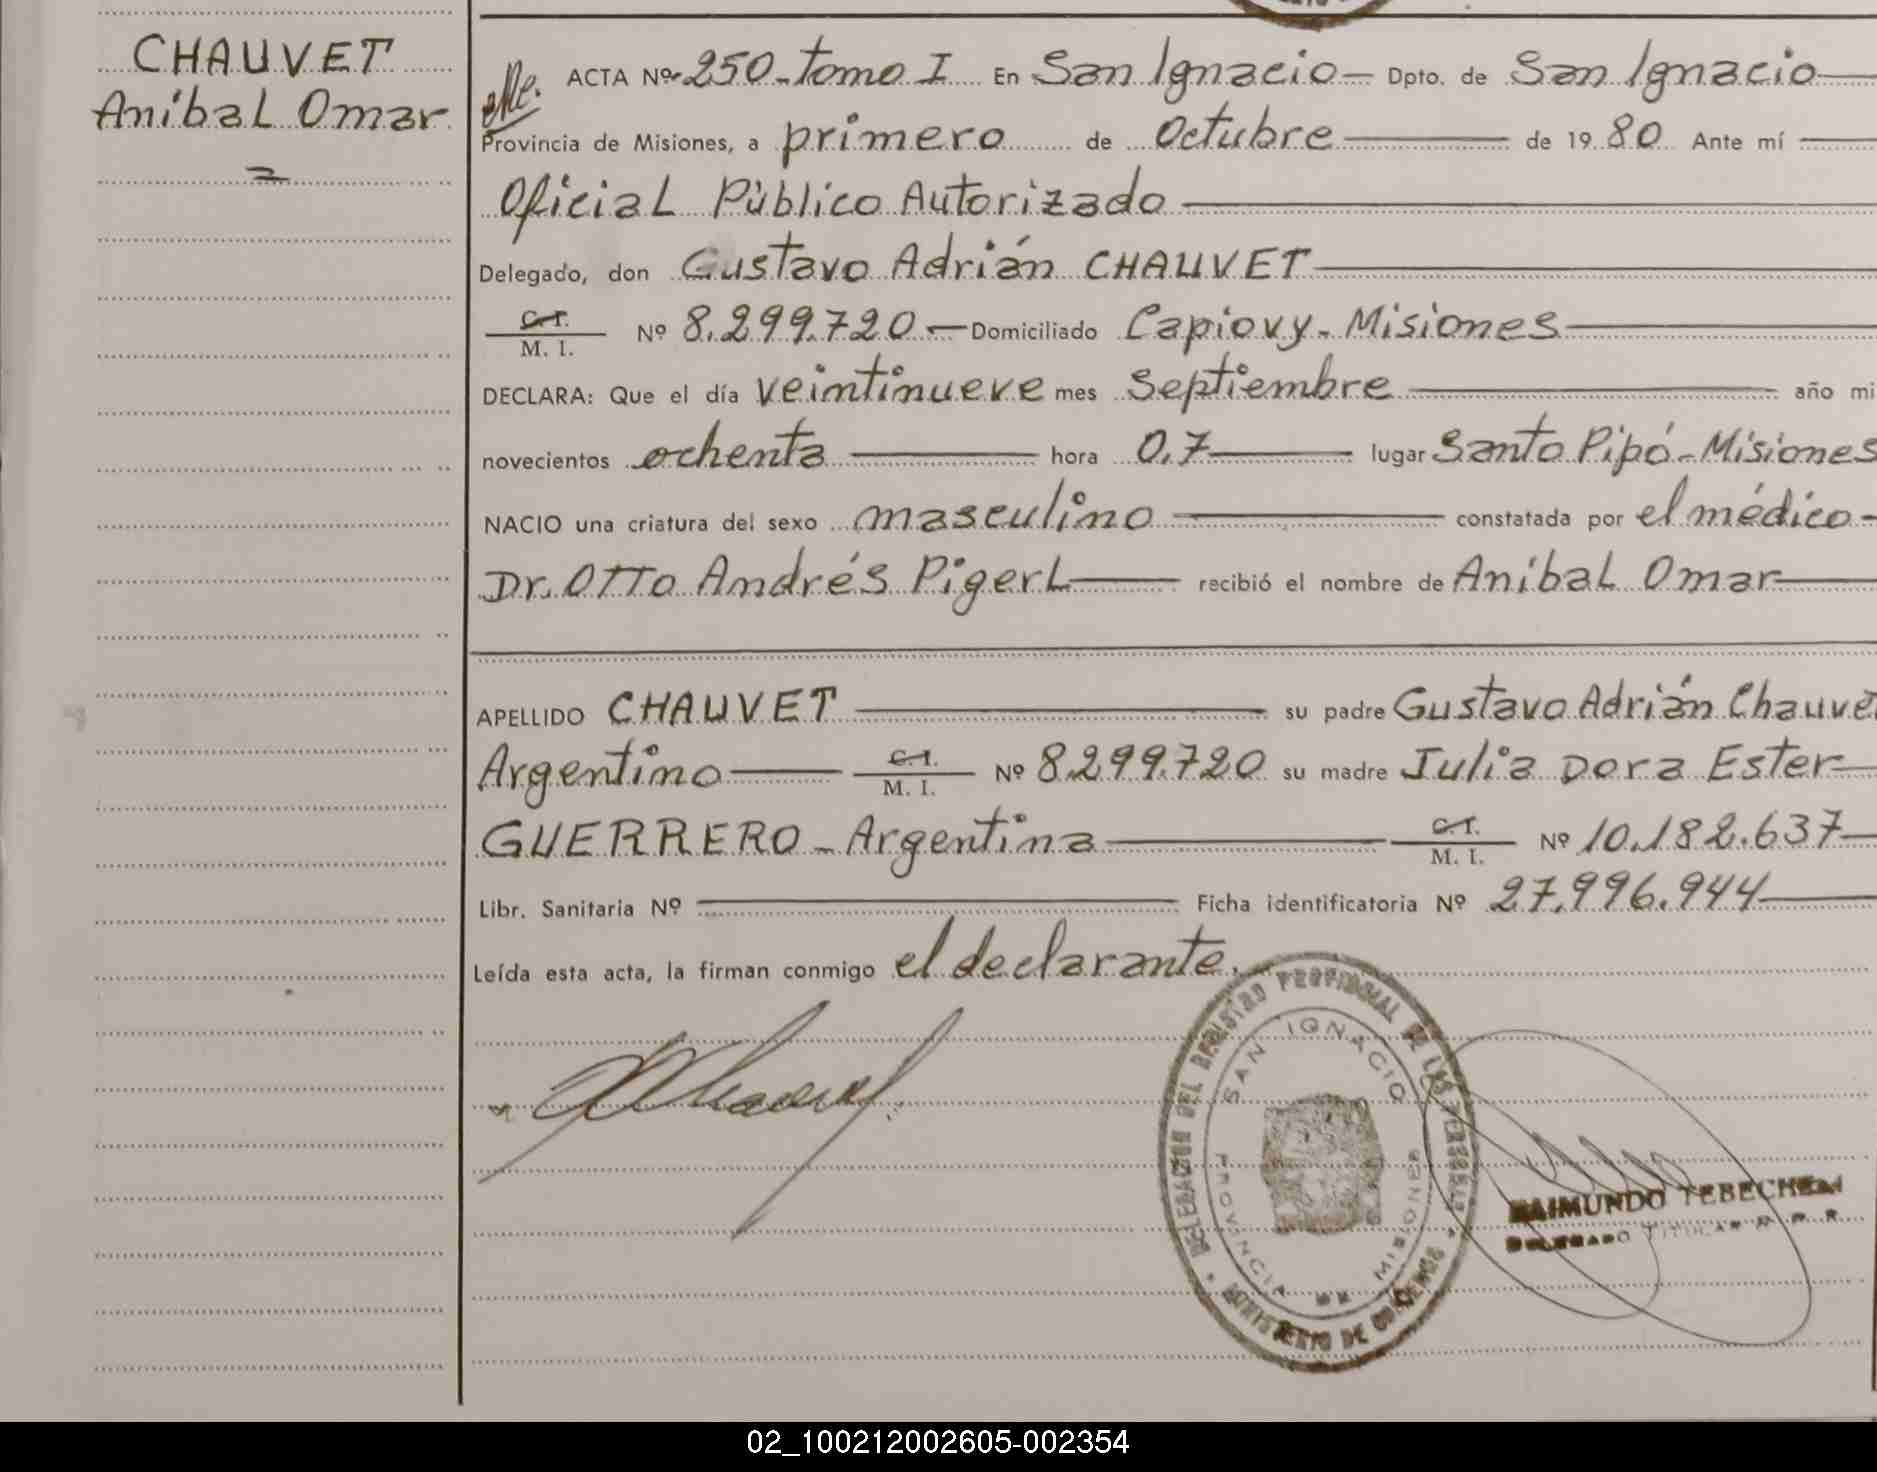 CHAUVET
Aníbal Omar
ACTA Nº 250-Tomo I En San Ignacio Dpto. de San Ignacio
Provincia de Misiones, a primero de Octubre de 1980 Ante mí
Oficial Público Autorizado
Delegado, don Gustavo Adrián CHAUVET
C.I.
M. I. Nº 8.299.720 Domiciliado Capiovy-Misiones
DECLARA: Que el día veintinueve mes Septiembre año mi
novecientos ochenta hora 0,7 lugar Santo Pipó-Misiones
NACIO una criatura del sexo masculino constatada por el médico
Dr. OTTO Andrés Pigerl recibió el nombre de Aníbal Omar
APELLIDO CHAUVET su padre Gustavo Adrián Chauvet
Argentino C.I. M. I. Nº 8.299.720 su madre Julia Dora Ester
GUERRERO-Argentina C.I. M. I. Nº 10.182.637
Libr. Sanitaria Nº Ficha identificatoria Nº 27.996.944
Leída esta acta, la firman conmigo el declarante.
DELEGACION DEL REGISTRO PROVINCIAL DE LAS PERSONAS
MINISTERIO DE GOBIERNO
SAN IGNACIO
PROVINCIA DE MISIONES
RAIMUNDO TEBECHERI
DELEGADO TITULAR
02_100212002605-002354